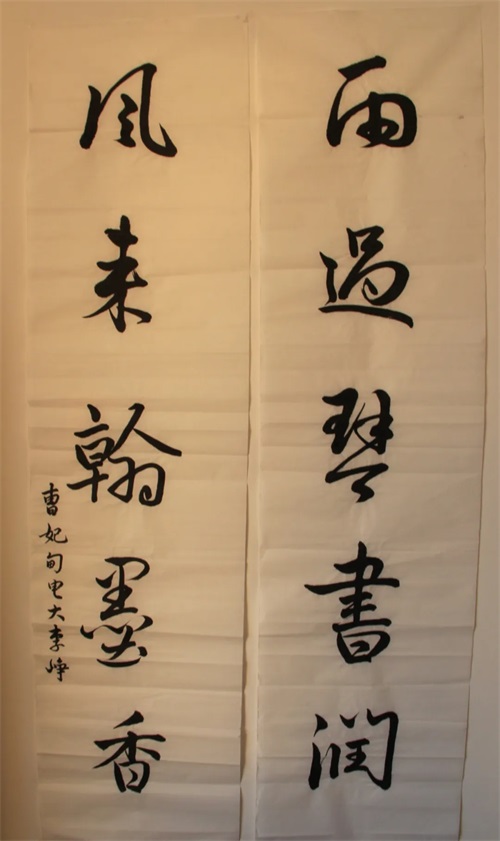 雨過琴書潤
風来翰墨香
曹妃甸电大李峥